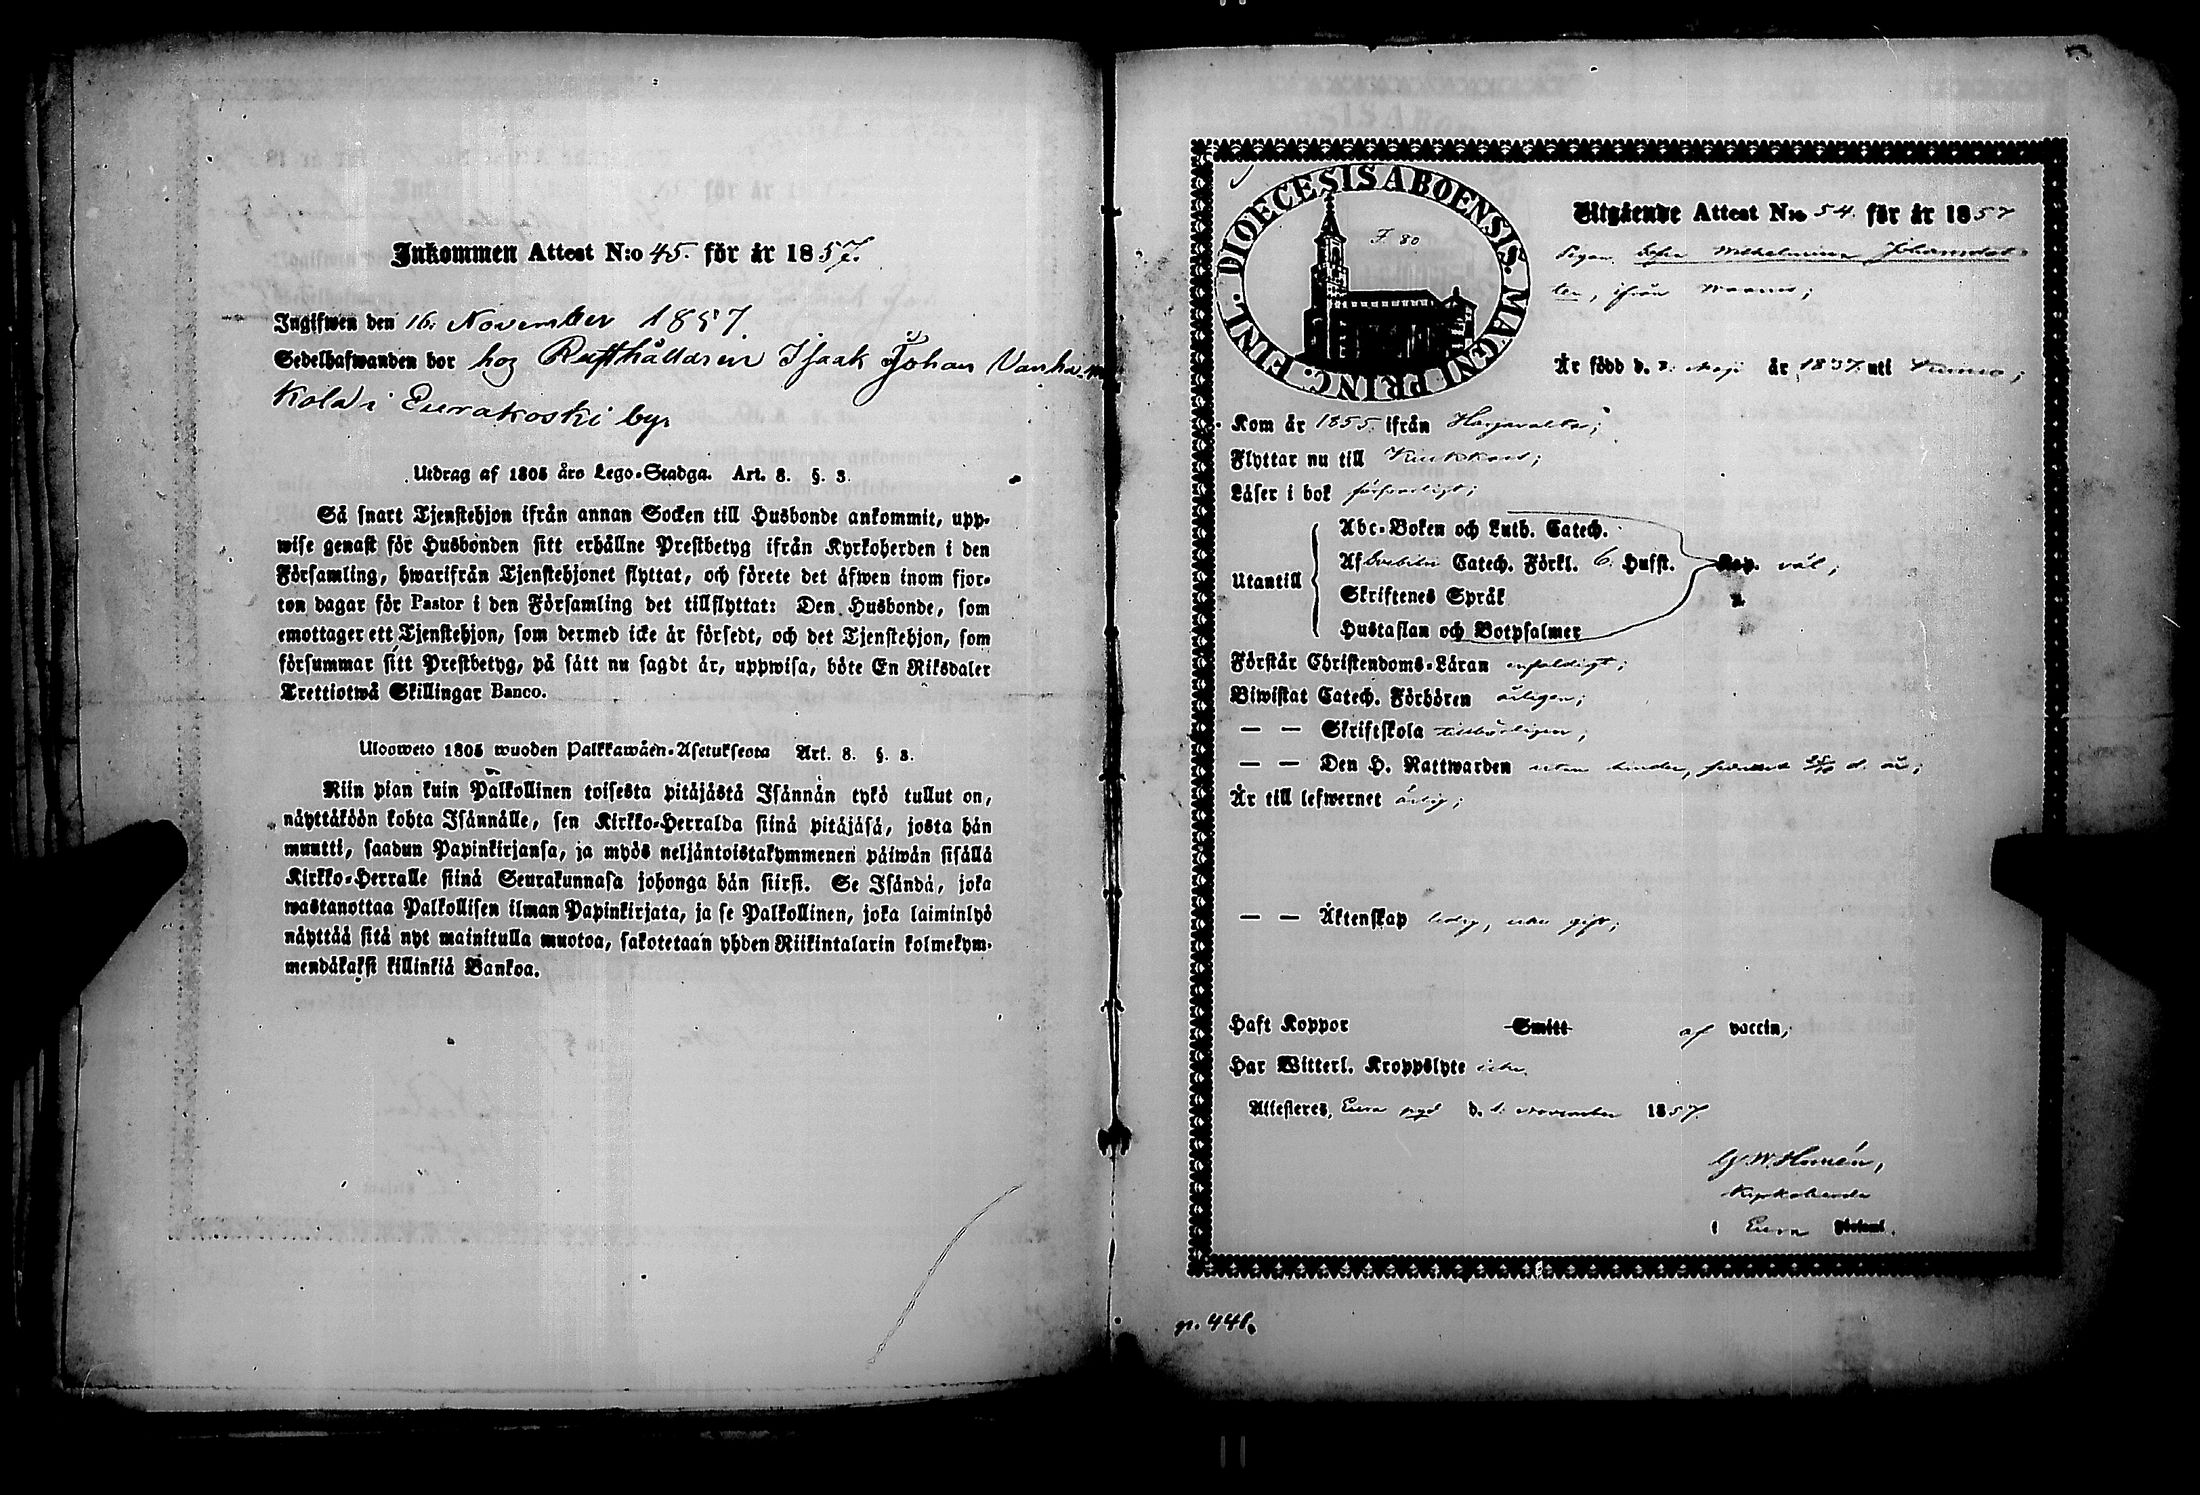 Inkommen Attest N:o 45. för år 1857.
Ingifwen den 16. November 1857
Sedelhafwanden bor hos Rusthållaren Isaak Johan Vanha-
Kola i Eurakoski by.
Utdrag af 1805 års Lego-Stadga. Art. 8. §. 3.
Så snart Tjenstehjon ifrån annan Socken till Husbonde ankommit, upp-
wise genast för Husbonden sitt erhållne Prestbetyg ifrån Kyrkoherden i den
Församling, hwarifrån Tjenstehjonet flyttat, och förete det äfwen inom fjor-
ton dagar för Pastor i den Församling det tillflyttat: Den Husbonde, som
emottager ett Tjenstehjon, som dermed icke är försedt, och det Tjenstehjon, som
försummar sitt Prestbetyg, på sätt nu sagdt är, uppwisa, böte En Riksdaler
Trettiotwå Skillingar Banco.
Ulosweto 1805 wuoden Palkkawäen-Asetuksesta Art. 8. §. 3.
Niin pian kuin Palkollinen toisesta pitäjästä Isännän tykö tullut on,
näyttäköön kohta Isännälle, sen Kirkko-Herralda siinä pitäjäsä, josta hän
muutti, saadun Papinkirjansa, ja myös neljäntoistakymmenen päiwän sisällä
Kirkko-Herralle siinä Seurakunnasa johonga hän siirsi. Se Isändä, joka
wastanottaa Palkollisen ilman Papinkirjata, ja se Palkollinen, joka laiminlyö
näyttää sitä nyt mainitulla muotoa, sakotetaan yhden Riikintalarin kolmekym-
mendäkaksi killinkiä Bankoa.
DIOECESIS ABOENSIS. MAGNI PRINC. FINL.
F. 80
Utgående Attest N:o 54. för år 1857
Pigan Sofia Wilhelmina Johansdot-
ter, ifrån
Är född d. Maji år 1837 uti
Kom år 1855 ifrån Harjavalta;
Flyttar nu till Kiukkois;
Läser i bok försvarligt;
Utantill
Abc-Boken och Luth. Catech.
Af Svebilii Catech. Förkl. 6. Hufst. väl;
Skriftenes Språk
Hustaflan och Botpsalmer
Förstår Christendoms-Läran enfaldigt;
Biwistat Catech. Förhören årligen;
— — Skriftskola tillbörligen;
— — Den H. Nattwarden utan hinder, d. år;
Är till lefwernet ärlig;
— — Äktenskap ledig, icke gift;
Haft Koppor Smitt af vaccin;
Har Witterl. Kroppslyte icke.
Attesteres, Eura pgd d. 1. November 1857.
G. W. Homén,
Kyrkoherde
i Eura Församl.
p. 441.